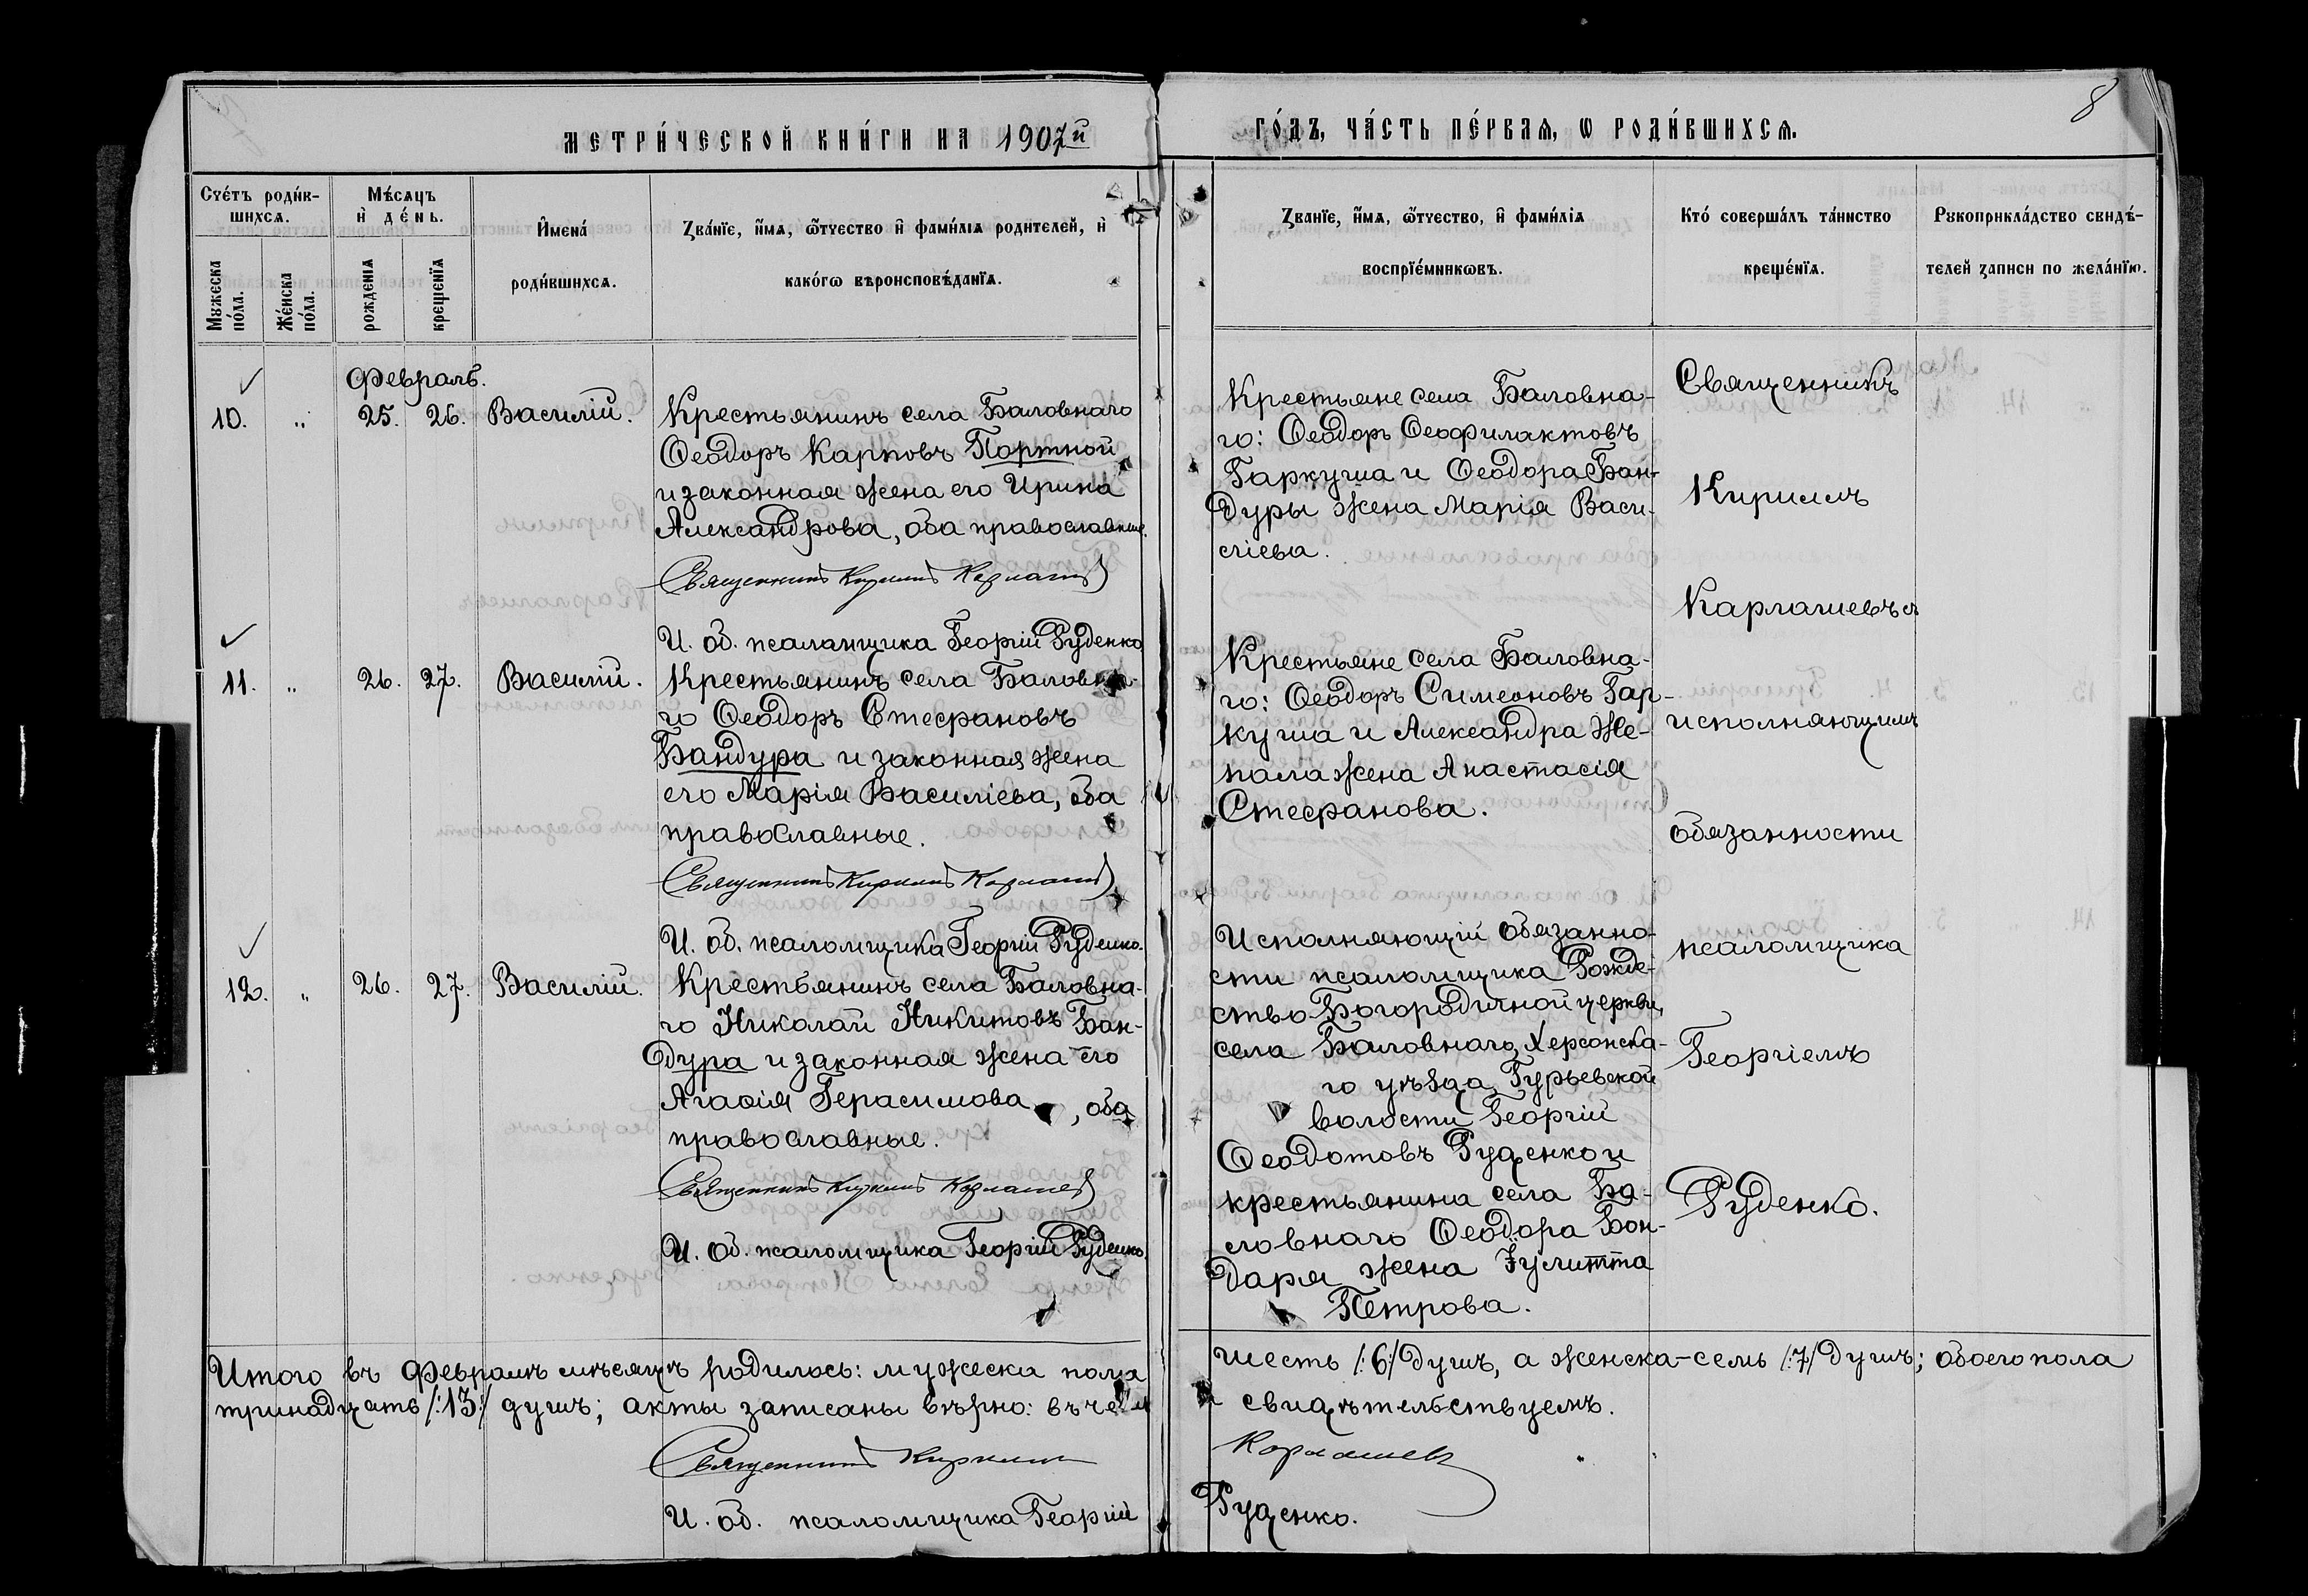 8
МЕТРИ́ЧЕСКОЙ КНИ́ГИ НА 1907й
ГО́ДЪ, ЧА́СТЬ ПЕ́РВАѦ, Ѡ РОДИ́ВШИХСѦ.
Сче́тъ роди́вшихсѧ.
Мꙋ́жеска по́ла.
Же́нска по́ла.
Мѣ́сѧцъ и҆ де́нь.
рожденїѧ
крещенїѧ
И҆мена́
роди́вшихсѧ.
Зва́нїе, и҆́мѧ, ѻ҆́тчество и҆ фами́лїѧ родителей, и҆
како́гѡ вѣроисповѣ́данїѧ.
Зва́нїе, и҆́мѧ, ѻ҆́тчество, и҆ фами́лїѧ
воспрїе́мникѡвъ.
Кто́ соверша́лъ та́инство
креще́нїѧ.
Рꙋкоприкла́дство свидѣ́-
телей записи по жела́нїю.
Февраль.
10. „ 25. 26. Василій.
Крестьянинъ села Баловнаго
Ѳеодоръ Карповъ Портной
и законная жена его Ирина
Александрова, оба православные.
Священникъ Кириллъ Карлашев
И. об. псаломщика Георгій Руденко
Крестьяне села Баловна-
го: Ѳеодоръ Ѳеофилактовъ
Гаркуша и Ѳеодора Бан-
дуры жена Марія Васи-
ліева.
11. „ 26. 27. Василій.
Крестьянинъ села Баловна-
го Ѳеодоръ Стефановъ
Бандура и законная жена
его Марія Василіева, оба
православные.
Священникъ Кириллъ Карлашев
И. об. псаломщика Георгій Руденко.
Крестьяне села Баловна-
го: Ѳеодоръ Симеоновъ Гар-
куша и Александра Же-
пала жена Анастасія
Стефанова.
12. „ 26. 27. Василій.
Крестьянинъ села Баловна-
го Николай Никитовъ Бан-
дура и законная жена его
Агаѳія Герасимова, оба
православные.
Священникъ Кириллъ Карлашев
И. об. псаломщика Георгій Руденко.
Исполняющій обязанно-
сти псаломщика Рожде-
ство-Богородичной церкви,
села Баловнаго, Херсонска-
го уѣзда, Гурьевской
волости Георгій
Ѳеодотовъ Руденко и
крестьянина села Ба-
ловнаго Ѳеодора Бон-
даря жена Іулитта
Петрова.
Священникъ
Кириллъ
Карлашевъ съ
исполняющимъ
обязанности
псаломщика
Георгіемъ
Руденко.
Итого въ Февралѣ мѣсяцѣ родилось: мужеска пола
шесть /:6:/ душъ, а женска-семь /:7:/ душъ; обоего пола
тринадцать /:13:/ душъ; акты записаны вѣрно: въ чемъ
и свидѣтельствуемъ.
Священникъ Кириллъ
Карлашев
И. об. псаломщика Георгій
Руденко.